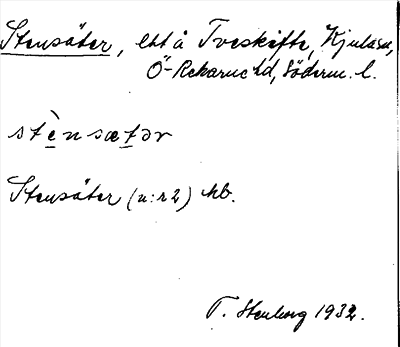 Stensäter, lht å Tveskifte, Kjulasn,
Ö-Rekarne hd, Söderm. l.
stènsætər
Stensäter (n:r 2) hb.
T. Stenborg 1932.